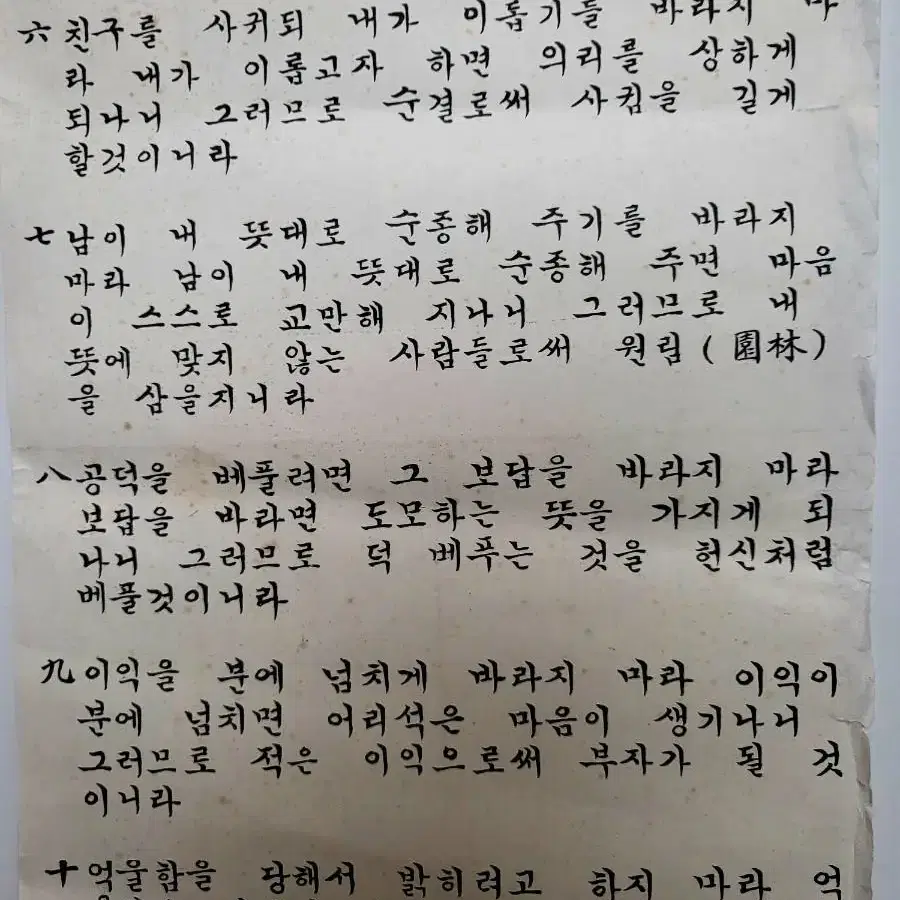 六 친구를 사귀되 내가 이롭기를 바라지 마
라 내가 이롭고자 하면 의리를 상하게
되나니 그러므로 순결로써 사귐을 길게
할것이니라
七 남이 내 뜻대로 순종해 주기를 바라지
마라 남이 내 뜻대로 순종해 주면 마음
이 스스로 교만해 지나니 그러므로 내
뜻에 맞지 않는 사람들로써 원림(園林)
을 삼을지니라
八 공덕을 베풀려면 그 보답을 바라지 마라
보답을 바라면 도모하는 뜻을 가지게 되
나니 그러므로 덕 베푸는 것을 헌신처럼
베풀것이니라
九 이익을 분에 넘치게 바라지 마라 이익이
분에 넘치면 어리석은 마음이 생기나니
그러므로 적은 이익으로써 부자가 될 것
이니라
十 억울함을 당해서 밝히려고 하지 마라 억